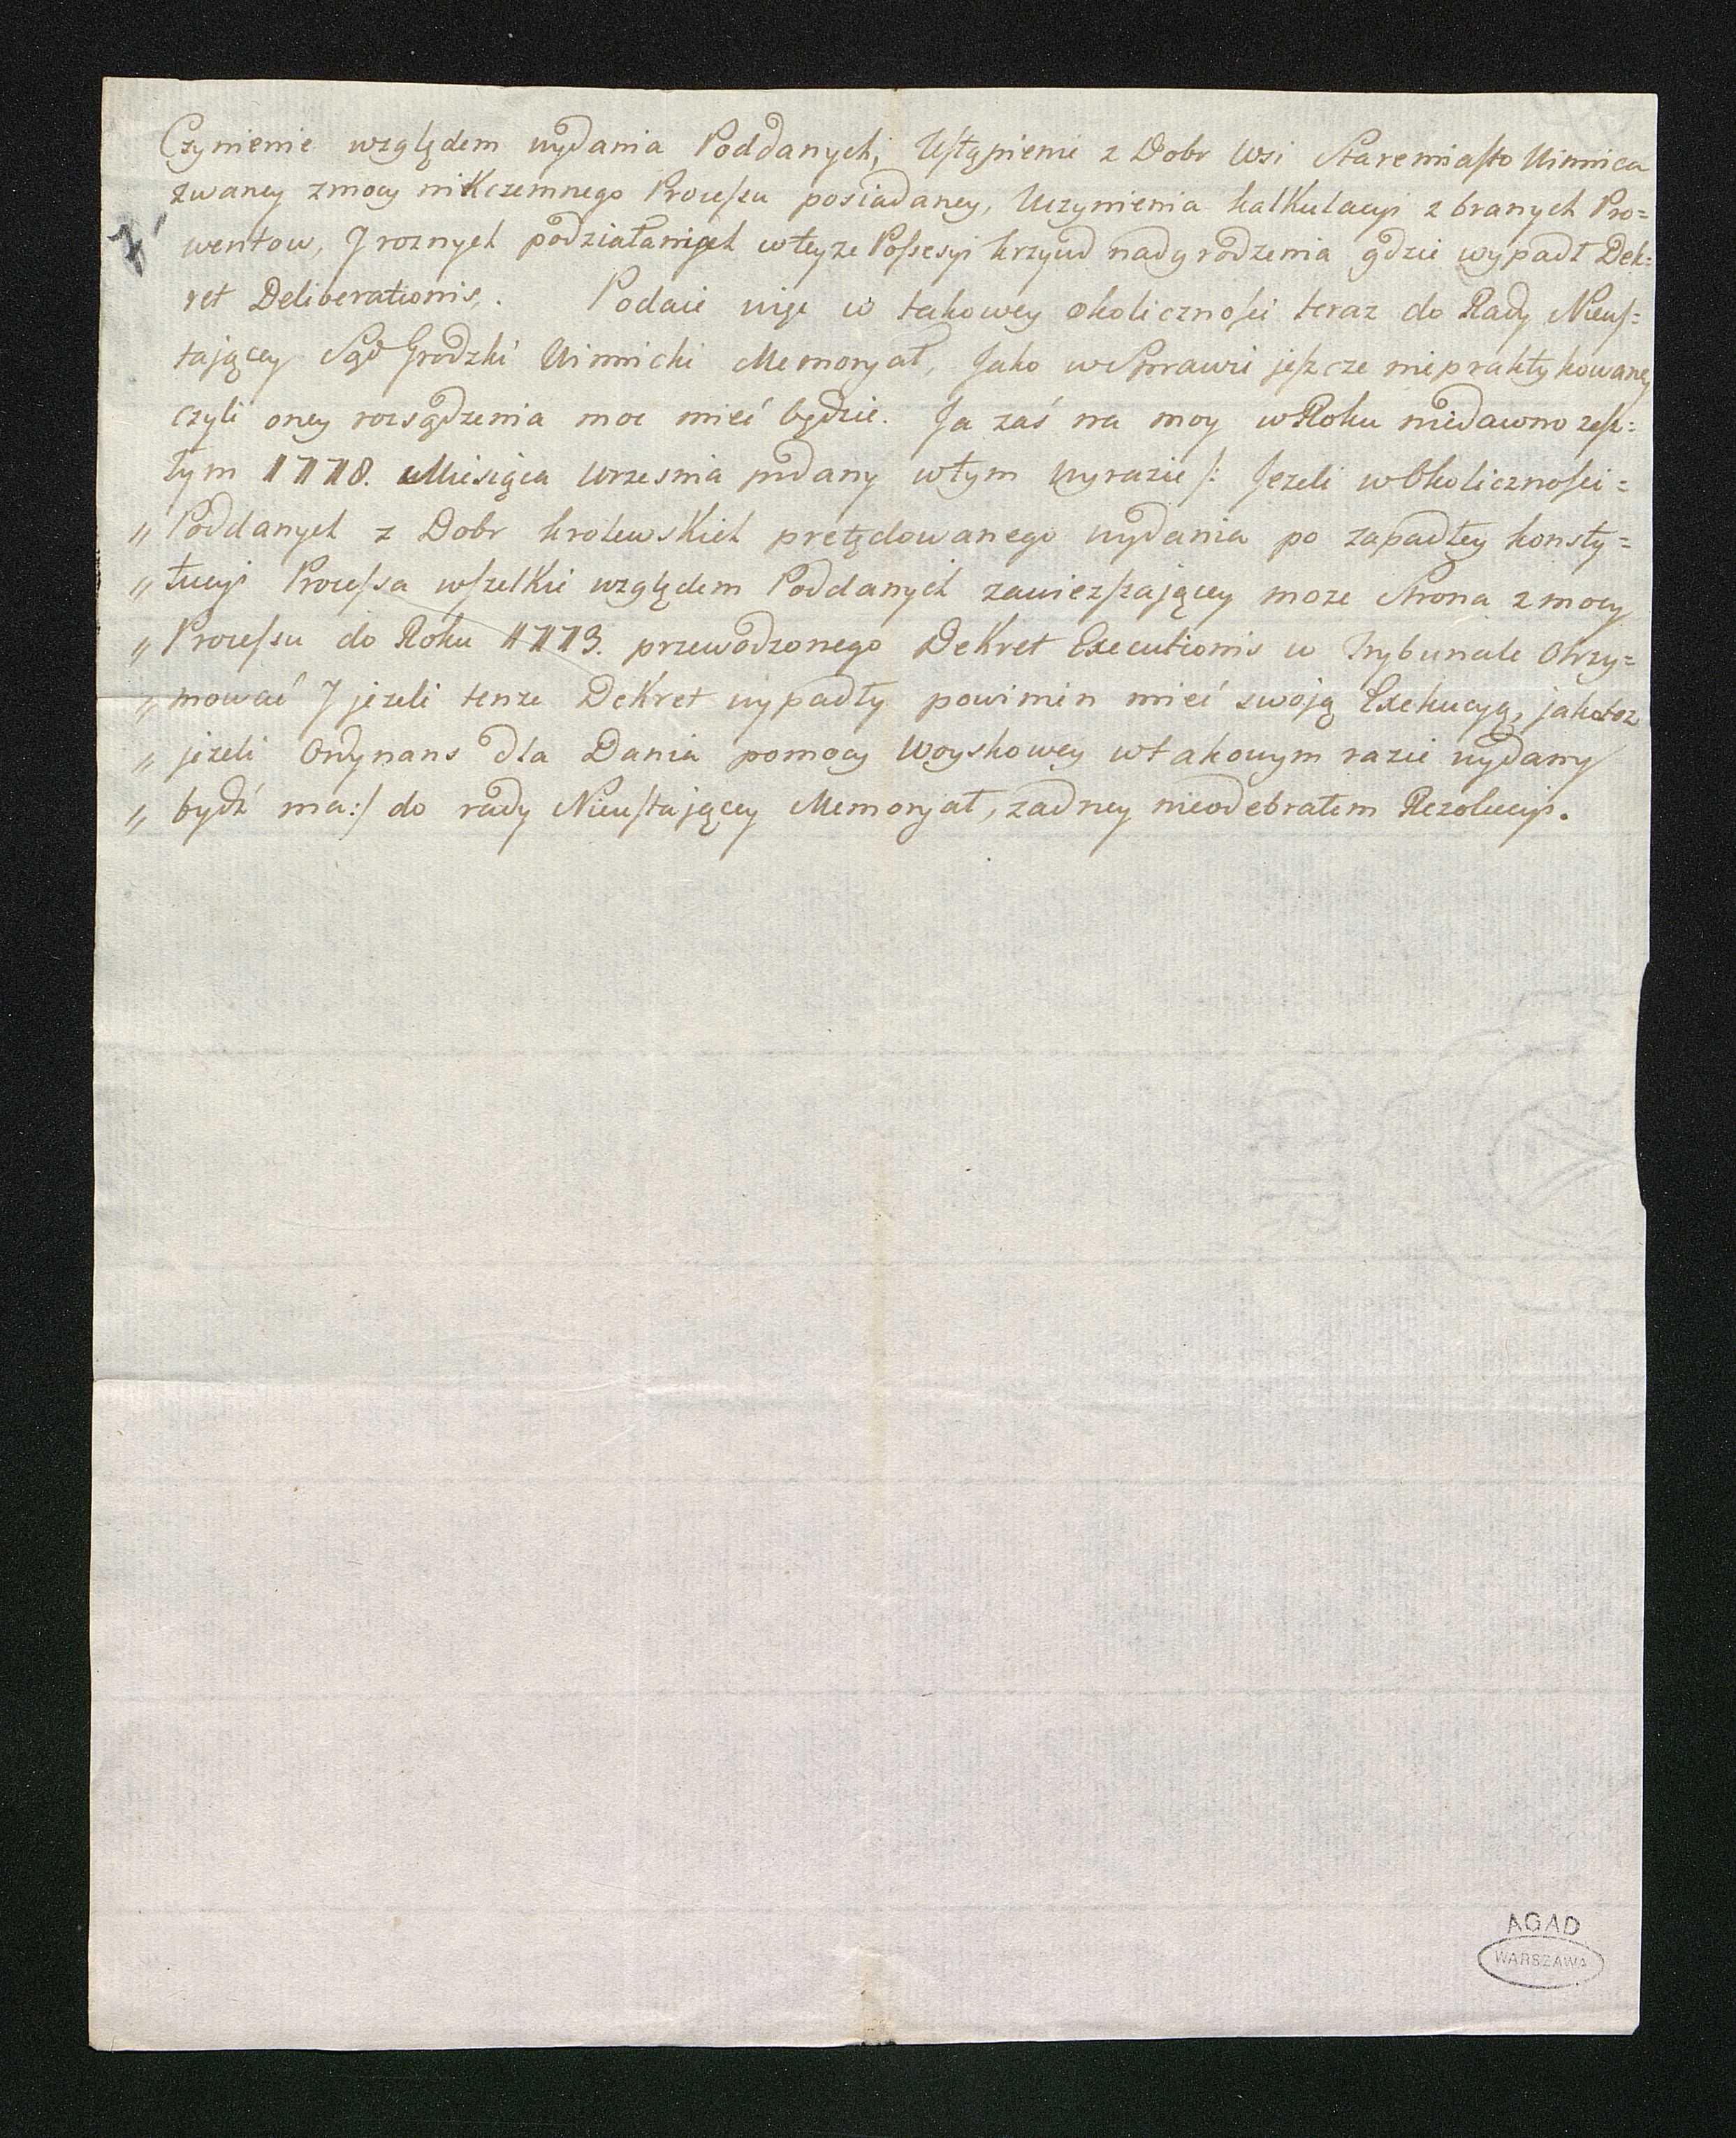 Czynienie względem wydania Poddanych, Ustąpienie z Dobr Wsi Staremiasto Winnica
zwaney zmocy nikczemnego Processu posiadaney, Uczynienia kalkulacyi z branych Pro=
wentow, J roznych podziałanych wteyże Possesyi krzywd nadgrodzenia gdzie wypadł Dek=
ret Deliberationis. Podaie więc w takowey okoliczności teraz do Rady Nieus=
taiącey Sąd Grodzki Winnicki Memoryał, Jako w Sprawie jeszcze nieprakty kowaney
czyli oney rozsądzenia moc mieć będzie. Ja zaś na moy w Roku niedawno zesz=
łym 1778. Miesiąca Wrzesnia podany wtym wyrazie /: Jeżeli w Okoliczności =
„ Poddanych z Dobr krolewskich pretędowanego wydania po zapadłey konsty=
„ tucyi Processa wszelkie względem Poddanych zawieszaiącey może Strona z mocy
„ Processu do Roku 1773. przewodzonego Dekret Executionis w Trybunale Otrzy=
„ mować J jeżeli tenże Dekret wypadły powinien mieć swoją Exekucyą, jakotez
„ jeżeli Ordynans dla Dania pomocy Woyskowey wtakowym razie wydany
„ bydź ma:/ do rady Nieustaiącey Memoryał, żadney nieodebrałem Rezolucyi.
AGAD
WARSZAWA